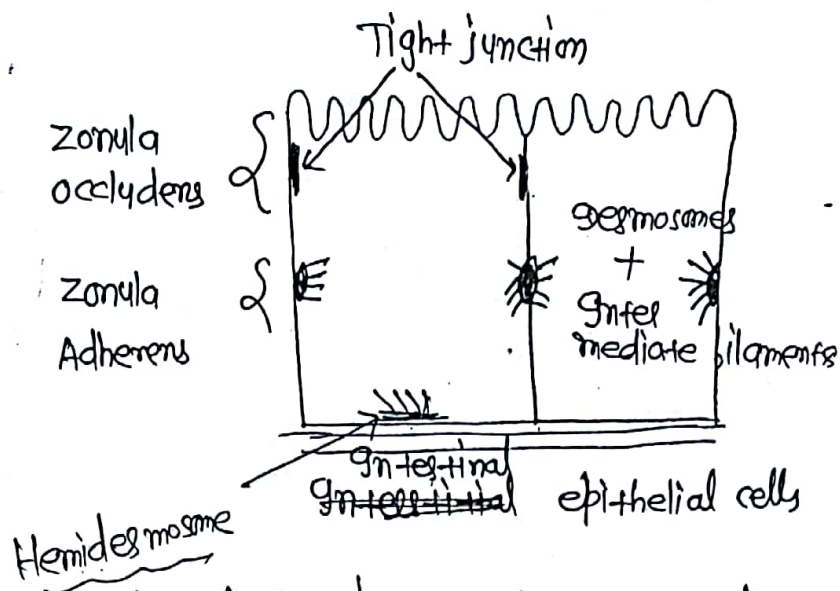 Tight junction
Zonula
Occludens
Zonula
Adherens
Desmosomes
+
Inter
mediate filaments
Intestinal
epithelial cells
Hemidesmosme